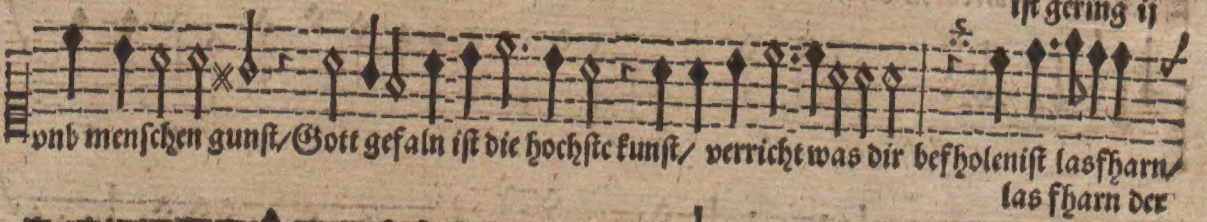 ist gering ij
vnb menschen gunst/Gott gefaln ist die hochste kunst/ verricht was dir befholenist lasfharn/
las fharn der